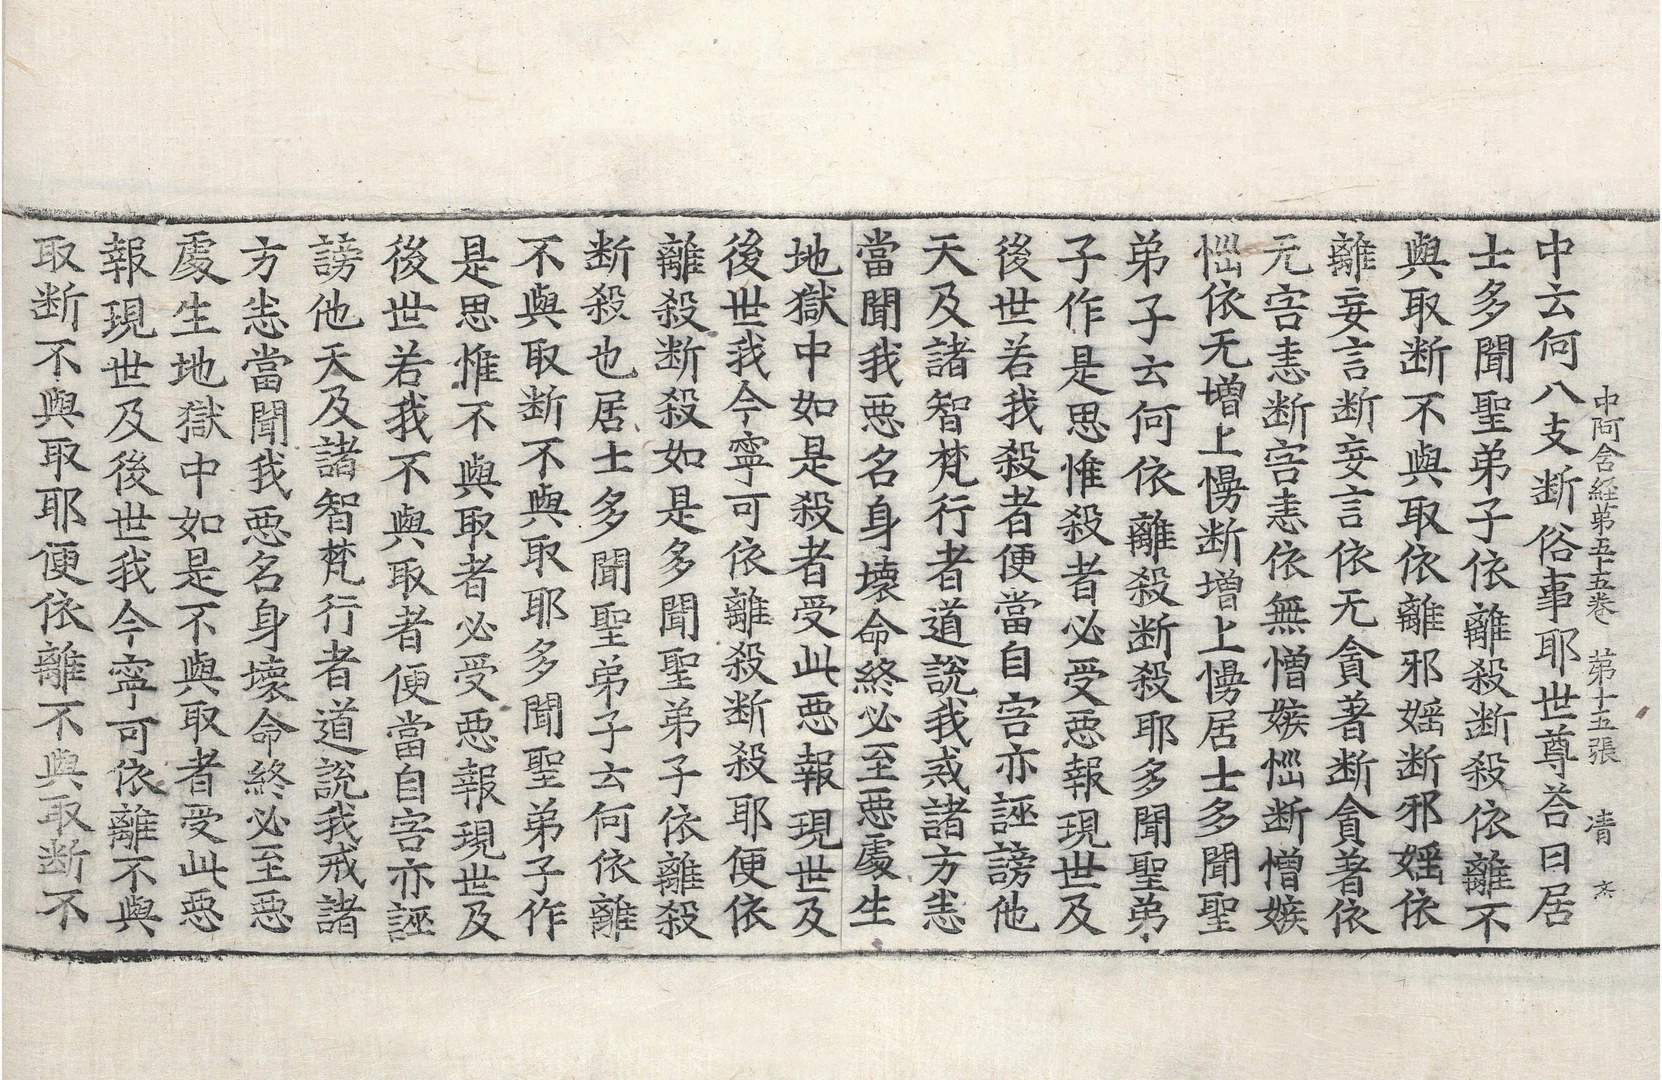 中阿含経第五十五巻　第十五張　凊
中云何八支断俗事耶世尊荅曰居
士多聞聖弟子依離殺断殺依離不
與取断不與取依離邪婬断邪婬依
離妄言断妄言依无貪著断貪著依
无害恚断害恚依無憎嫉㤧断憎嫉
㤧依无增上慢断增上慢居士多聞聖
弟子云何依離殺断殺耶多聞聖弟
子作是思惟殺者必受惡報現世及
後世若我殺者便當自害亦誣謗他
天及諸智梵行者道說我戒諸方悉
當聞我惡名身壞命終必至惡處生
地獄中如是殺者受此惡報現世及
後世我今寧可依離殺断殺耶便依
離殺断殺如是多聞聖弟子依離殺
断殺也居士多聞聖弟子云何依離
不與取断不與取耶多聞聖弟子作
是思惟不與取者必受惡報現世及
後世若我不與取者便當自害亦誣
謗他天及諸智梵行者道說我戒諸
方悉當聞我惡名身壞命終必至惡
處生地獄中如是不與取者受此惡
報現世及後世我今寧可依離不與
取断不與取耶便依離不與取断不